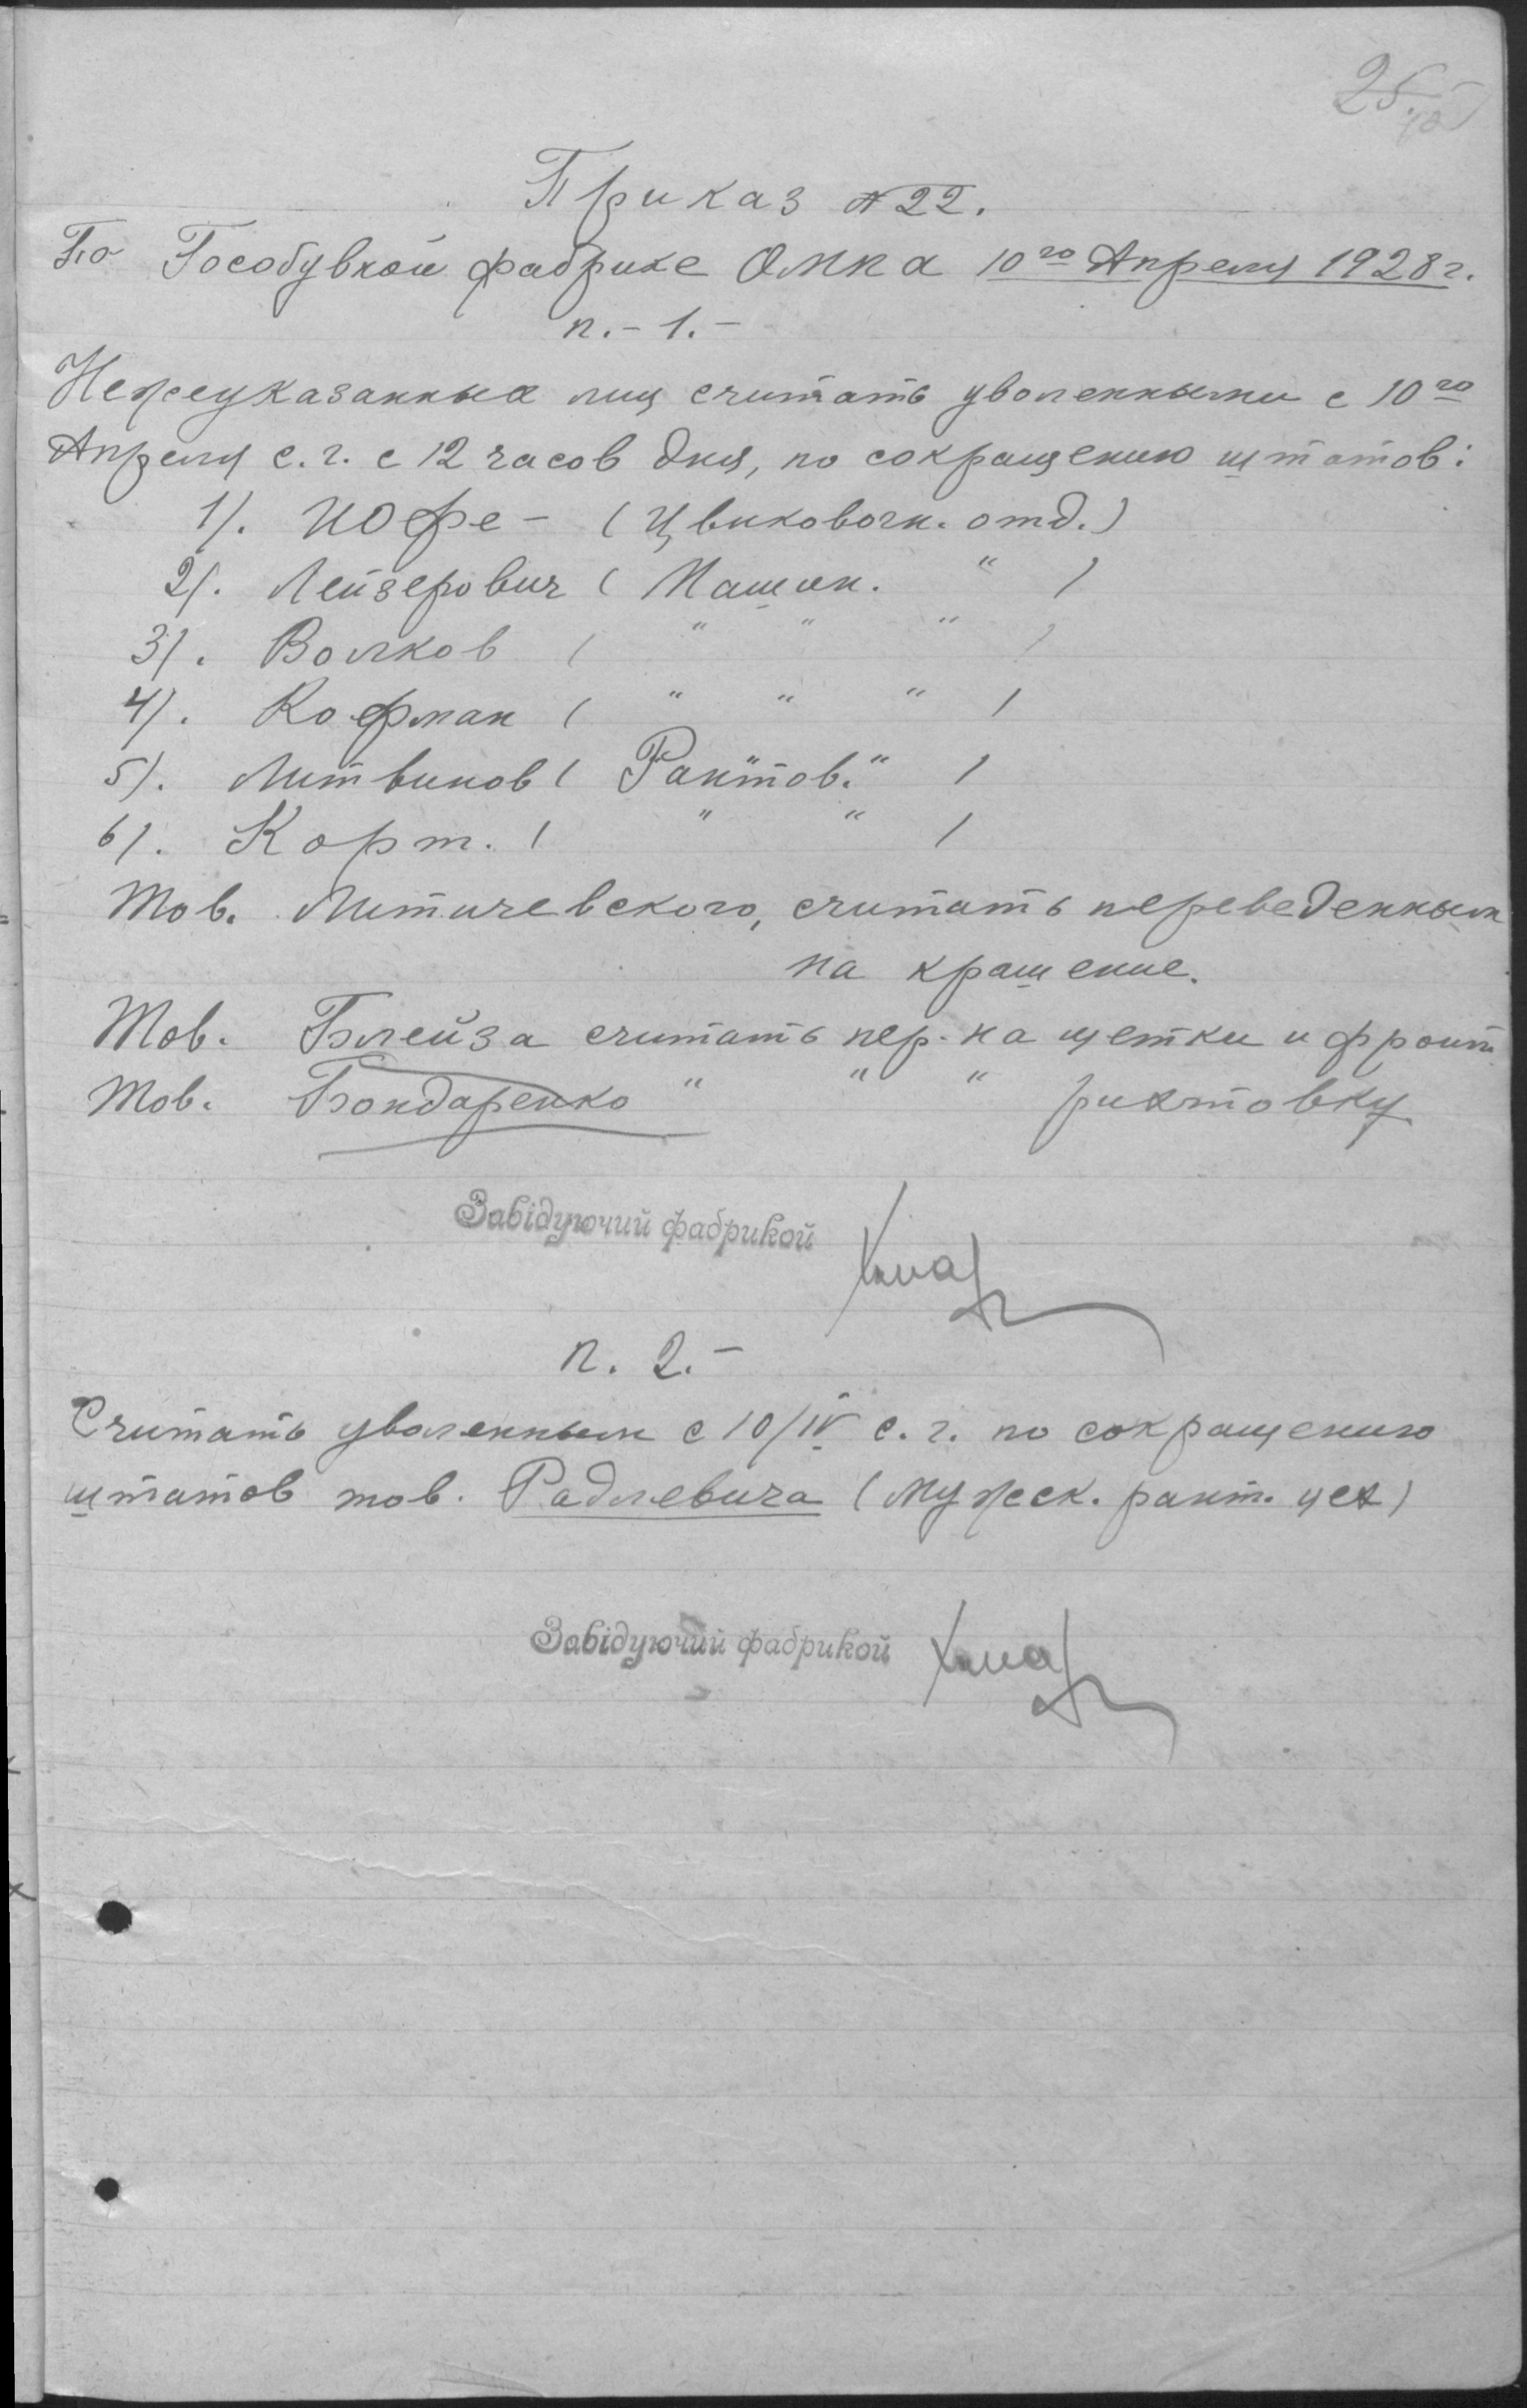 25
Приказ №22.
По Гособувной фабрике ОМКА 10го Апреля 1928г.
п.-1.-
Нежеуказанных лиц считать уволенными с 10го
Апреля с.г. с 12 часов дня, по сокращению штатов:
1). Иофе - (Цвиковочн. отд.)
2). Лейзерович ( Машин. " )
3). Волков ( " " " )
4). Кофман ( " " " )
5). Литвинов ( Рантов. " )
6). Корт. ( " " )
Тов. Литичевского, считать переведенным
на крашение.
Тов. Блейза считать пер. на щетки и фронт
Тов. Бондаренко " " " рихтовку
Завідуючий фабрикой
п. 2.-
Считать уволенным с 10/IV с.г. по сокращению
штатов тов. Радлевича (мужск. рант. цех)
Завідуючий фабрикой